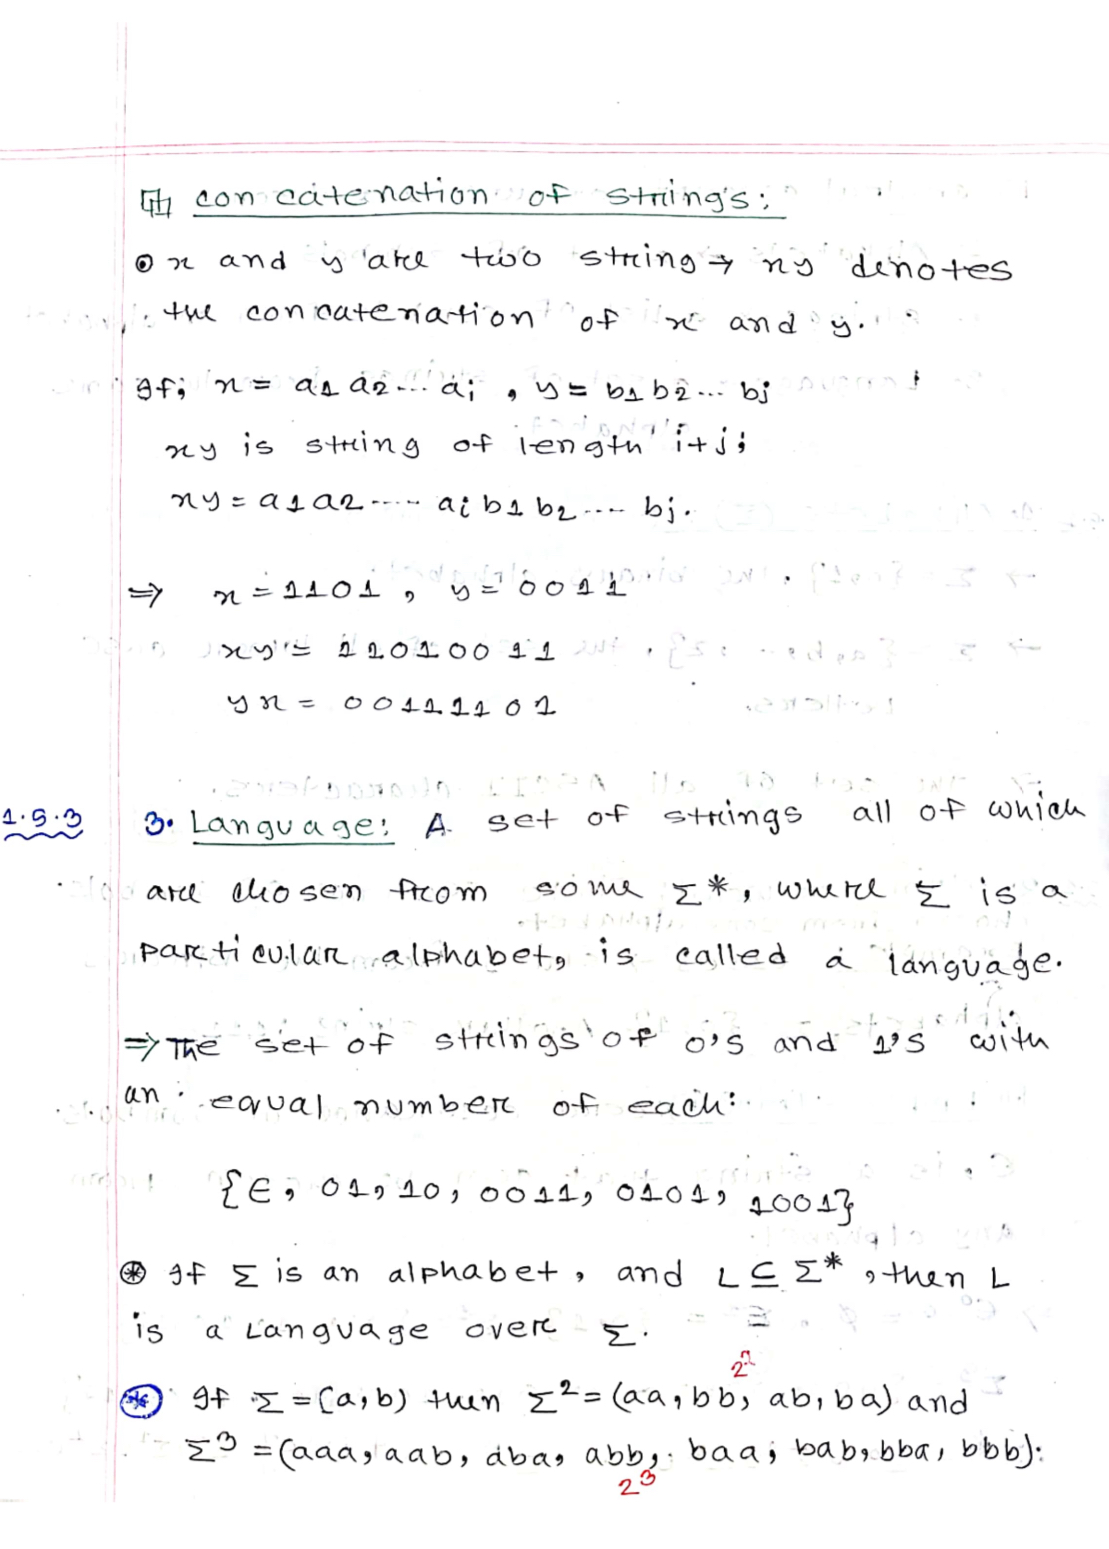 concatenation of strings:
x and y are two string → xy denotes
the concatenation of x and y.
If; x = a1 a2... ai , y = b1 b2... bj
xy is string of length i+j;
xy = a1 a2 ---- ai b1 b2 --- bj.
⇒ x = 1101 , y = 0011
xy = 11010011
yx = 00111101
1.5.3 3. Language: A set of strings all of which
are chosen from some Σ*, where Σ is a
particular alphabet, is called a language.
⇒ The set of strings of 0's and 1's with
an equal number of each:
{ϵ, 01, 10, 0011, 0101, 1001}
If Σ is an alphabet, and L ⊆ Σ* , then L
is a Language over Σ.
2²
If Σ = (a,b) then Σ² = (aa, bb, ab, ba) and
Σ³ = (aaa, aab, aba, abb, baa, bab, bba, bbb):
2³